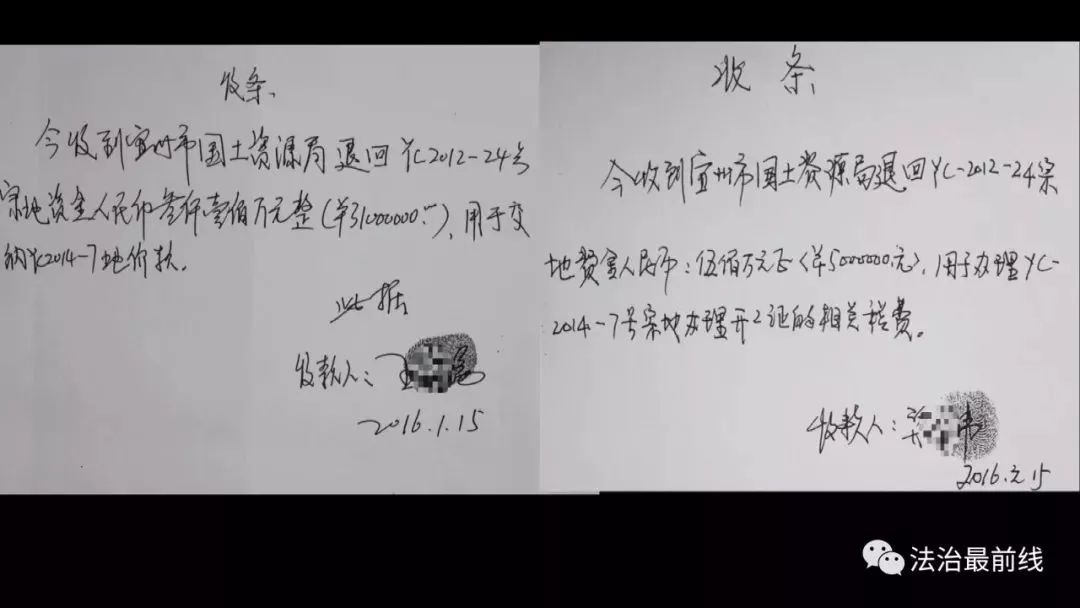 收条
今收到宜州市国土资源局退回YC2012-24号
宗地资金人民币叁仟壹佰万元整(¥31000000.00),用于交
纳YC2014-7地价款。
此据
收款人:王
2016.1.15
收 条
今收到宜州市国土资源局退回YC-2012-24宗
地资金人民币:伍佰万元正(¥5000000元),用于办理YC-
2014-7号宗地办理开工证的相关税费。
收款人:
2016.元.15
法治最前线